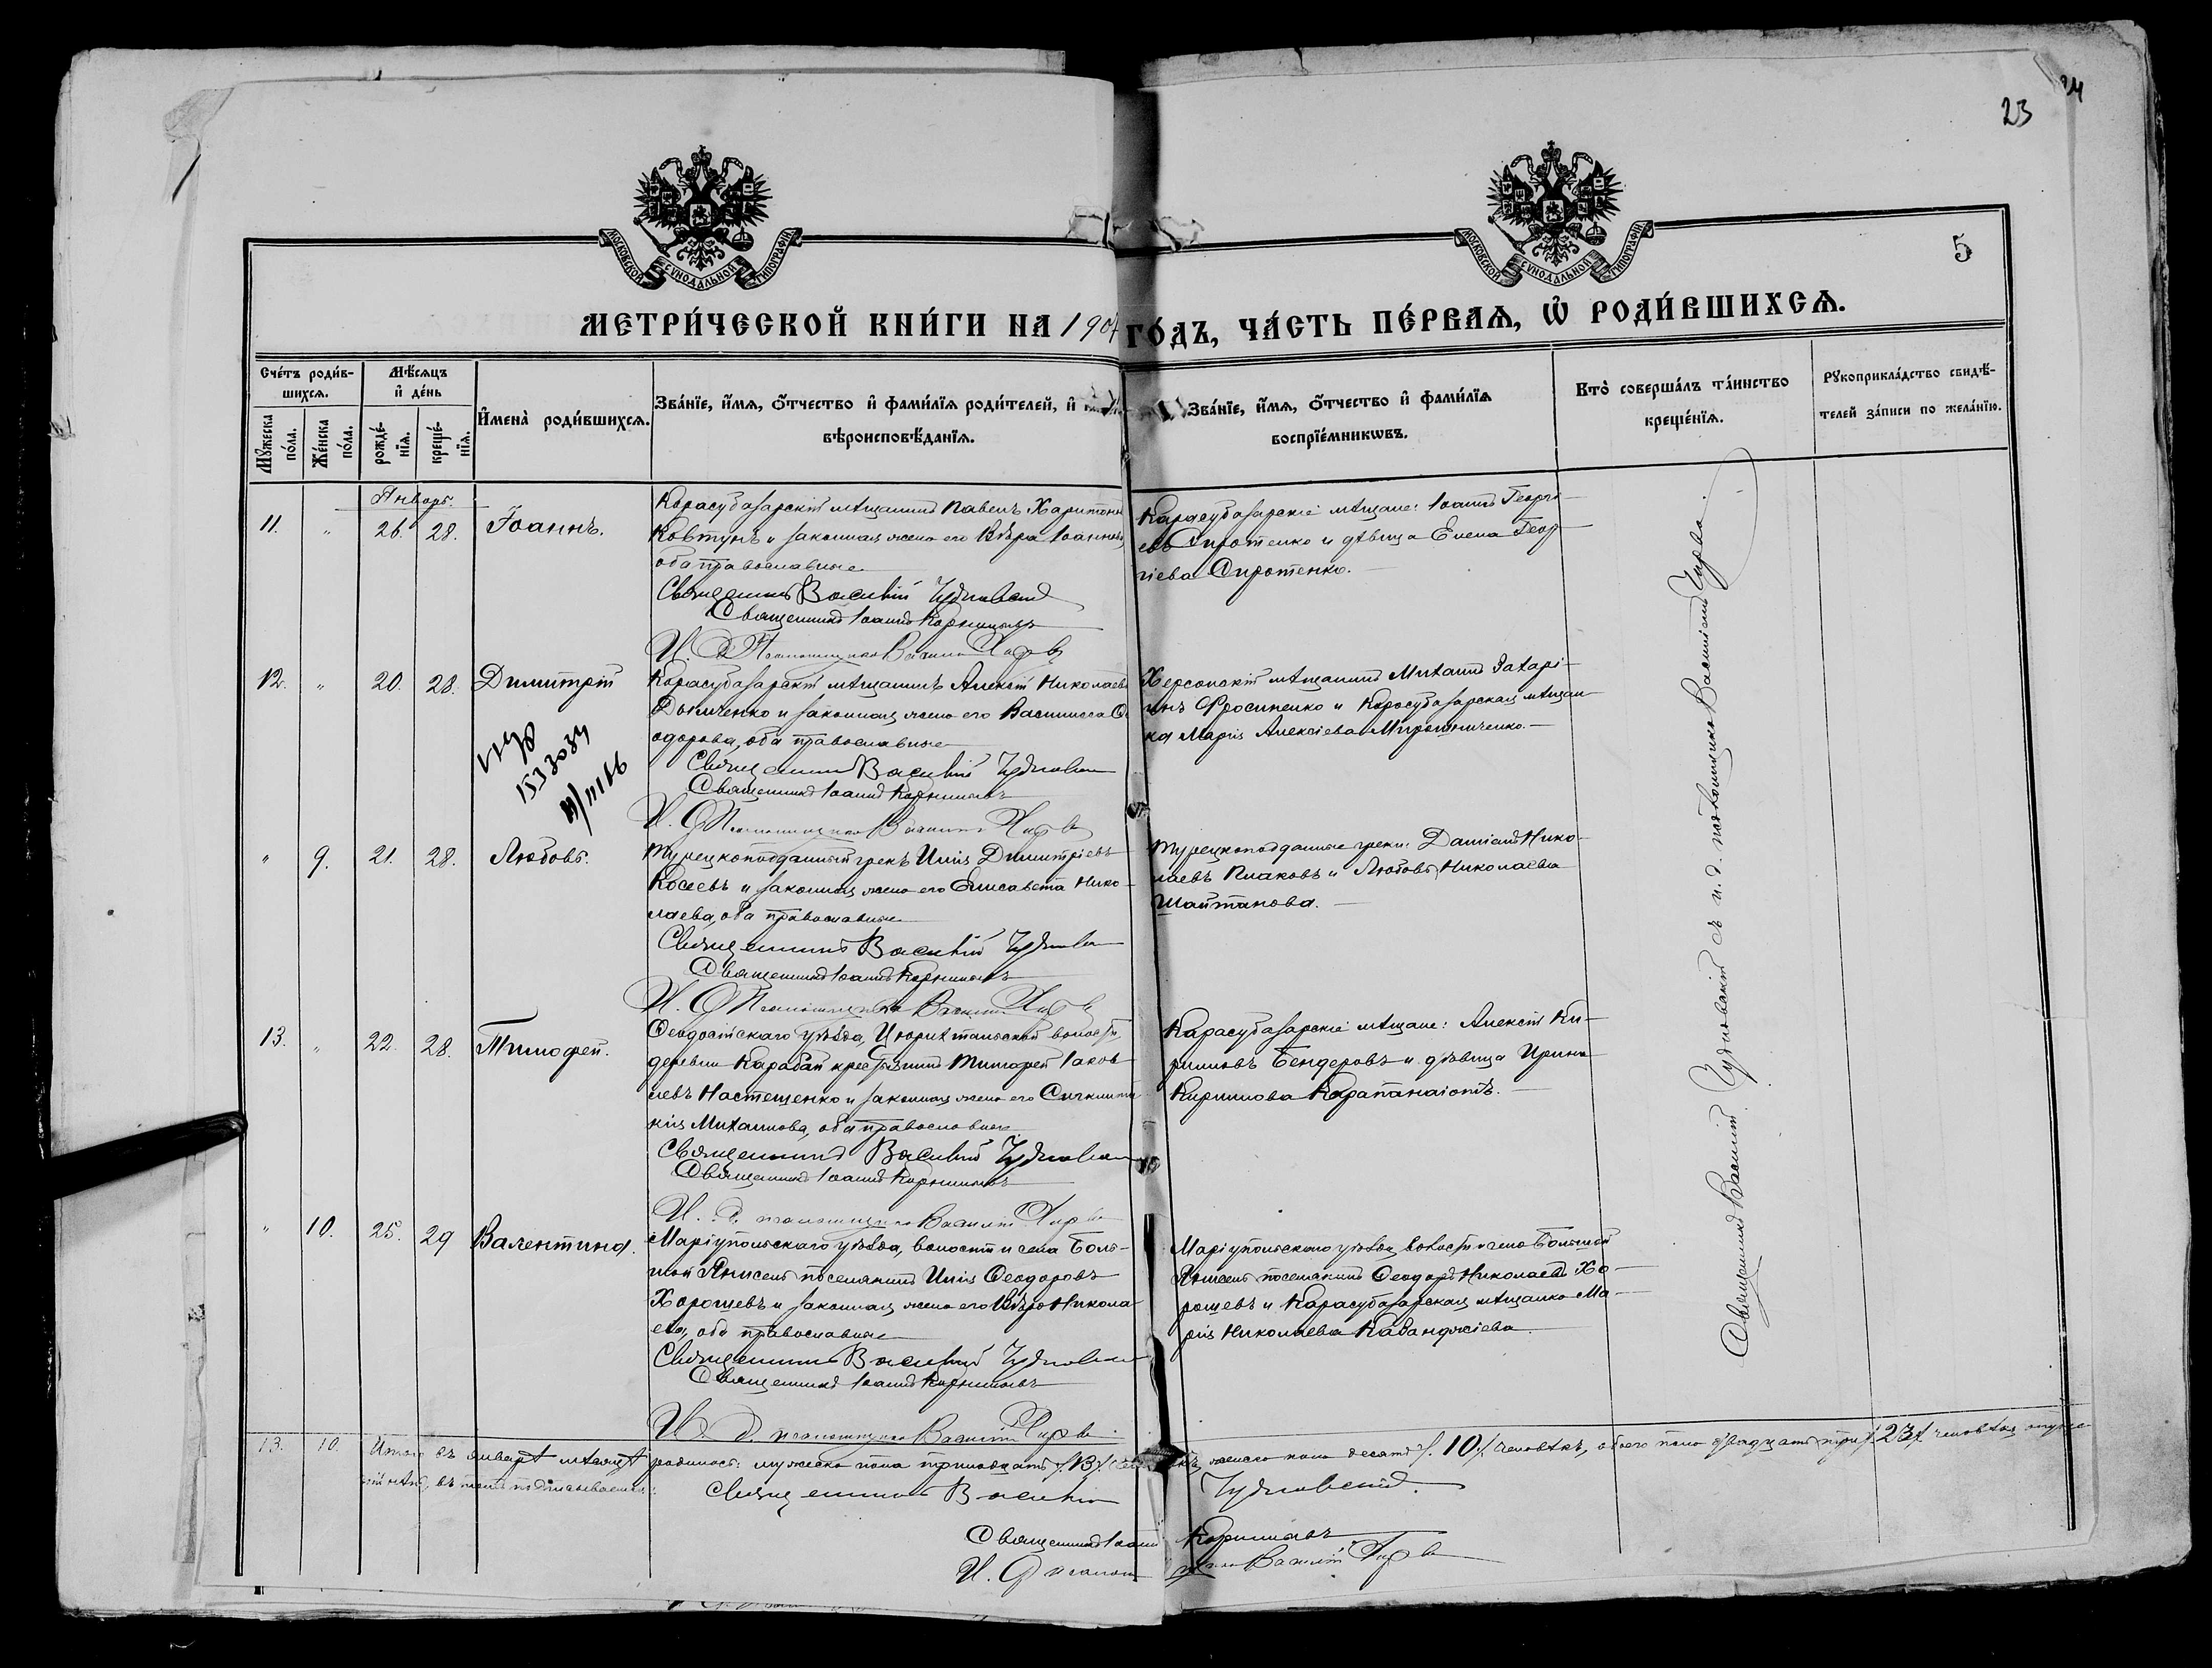 24
23
МОСКОВСКОЙ СѴНОДАЛЬНОЙ ТИПОГРАФІИ
МОСКОВСКОЙ СѴНОДАЛЬНОЙ ТИПОГРАФІИ
5
МЕТРИ́ЧЕСКОЙ КНИ́ГИ НА 1904 ГО́ДЪ, ЧА́СТЬ ПЕ́РВАѦ, Ѡ҆ РОДИ́ВШИХСѦ.
Сче́тъ роди́в-
шихсѧ.
Мꙋжеска по́ла.
Же́нска по́ла.
Мѣ́сѧцъ
и҆ де́нь
рожде́-
нїѧ.
креще́-
нїѧ.
И҆мена̀ роди́вшихсѧ.
Зва́нїе, и҆́мѧ, ѻ҆́тчество и҆ фами́лїѧ роди́телей, и҆
вѣроисповѣ́данїѧ.
Зва́нїе, и҆́мѧ, ѻ҆́тчество и҆ фами́лїѧ
воспрїе́мникѡвъ.
Кто̀ соверша́лъ та́инство
креще́нїѧ.
Рꙋкоприкла́дство свидѣ́-
телей за́писи по жела́нїю.
Январь.
11. " 26. 28. Іоаннъ.
Карасубазарскій мѣщанинъ Павелъ Харитоновъ
Ковтунъ и законная жена его Вѣра Іоаннова,
оба православные
Священникъ Василій Чудновскій
Священникъ Іоаннъ
И. Д. Псаломщика Василій
Карасубазарскіе мѣщане: Іоаннъ Георгі-
евъ Сиротенко и дѣвица Елена Геор-
гіева Сиротенко.
12. " 20. 28. Димитрій
Карасубазарскій мѣщанинъ Алексій Николаевъ
Дымченко и законная жена его Василисса Ѳе-
одорова, оба православные
Священникъ Василій Чудновскій
Священникъ Іоаннъ
И. Д. Псаломщика Василій
Херсонскій мѣщанинъ Михаилъ Захарі-
инъ Фросиненко и Карасубазарская мѣщан-
ка Марія Алексіева Мирошниченко.
" 9. 21. 28. Любовь.
Турецкоподданный грекъ Илія Димитріевъ
Косеевъ и законная жена его Елисавета Нико-
лаева, оба православные
Священникъ Василій Чудновскій
Священникъ Іоаннъ
И. Д. Псаломщика Василій
Турецкоподданные греки: Даміанъ Нико-
лаевъ Плаковъ и Любовь Николаева
Шайтанова.
13. " 22. 28. Тимофей.
Ѳеодосійскаго уѣзда, волости,
деревни Карабай крестьянинъ Тимофей Іаков-
левъ Настещенко и законная жена его
Михаилова, оба православные
Священникъ Василій Чудновскій
Священникъ Іоаннъ
И. Д. псаломщика Василій
Карасубазарскіе мѣщане: Алексій Ки-
рилловъ Бендеровъ и дѣвица Ирина
Кириллова Карапанаіотъ.
" 10. 25. 29 Валентина.
Маріупольскаго уѣзда, волости и села Боль-
шой Янисель поселянинъ Илія Ѳеодоровъ
Хорошевъ и законная жена его Вѣра Никола-
ева, оба православные
Священникъ Василій Чудновскій
Священникъ Іоаннъ
И. Д. псаломщика Василій
Маріупольскаго уѣзда волости и села Большой
Янисель поселянинъ Ѳеодоръ Николаевъ Хо-
рошевъ и Карасубазарская мѣщанка Ма-
рія Николаева Кабанджіева.
Священникъ Василій Чудновскій съ и. д. псаломщика Василіемъ
13. 10. Итого въ январѣ мѣсяцѣ родилось: мужеска пола тринадцать /.13./ человѣкъ, женска пола десять /.10./ человѣкъ, обоего пола двадцать три /.23./ человѣка
въ томъ подписываемся:
Священникъ Василій Чудновскій.
Священникъ Іоаннъ
И. Д. псаломщика Василій